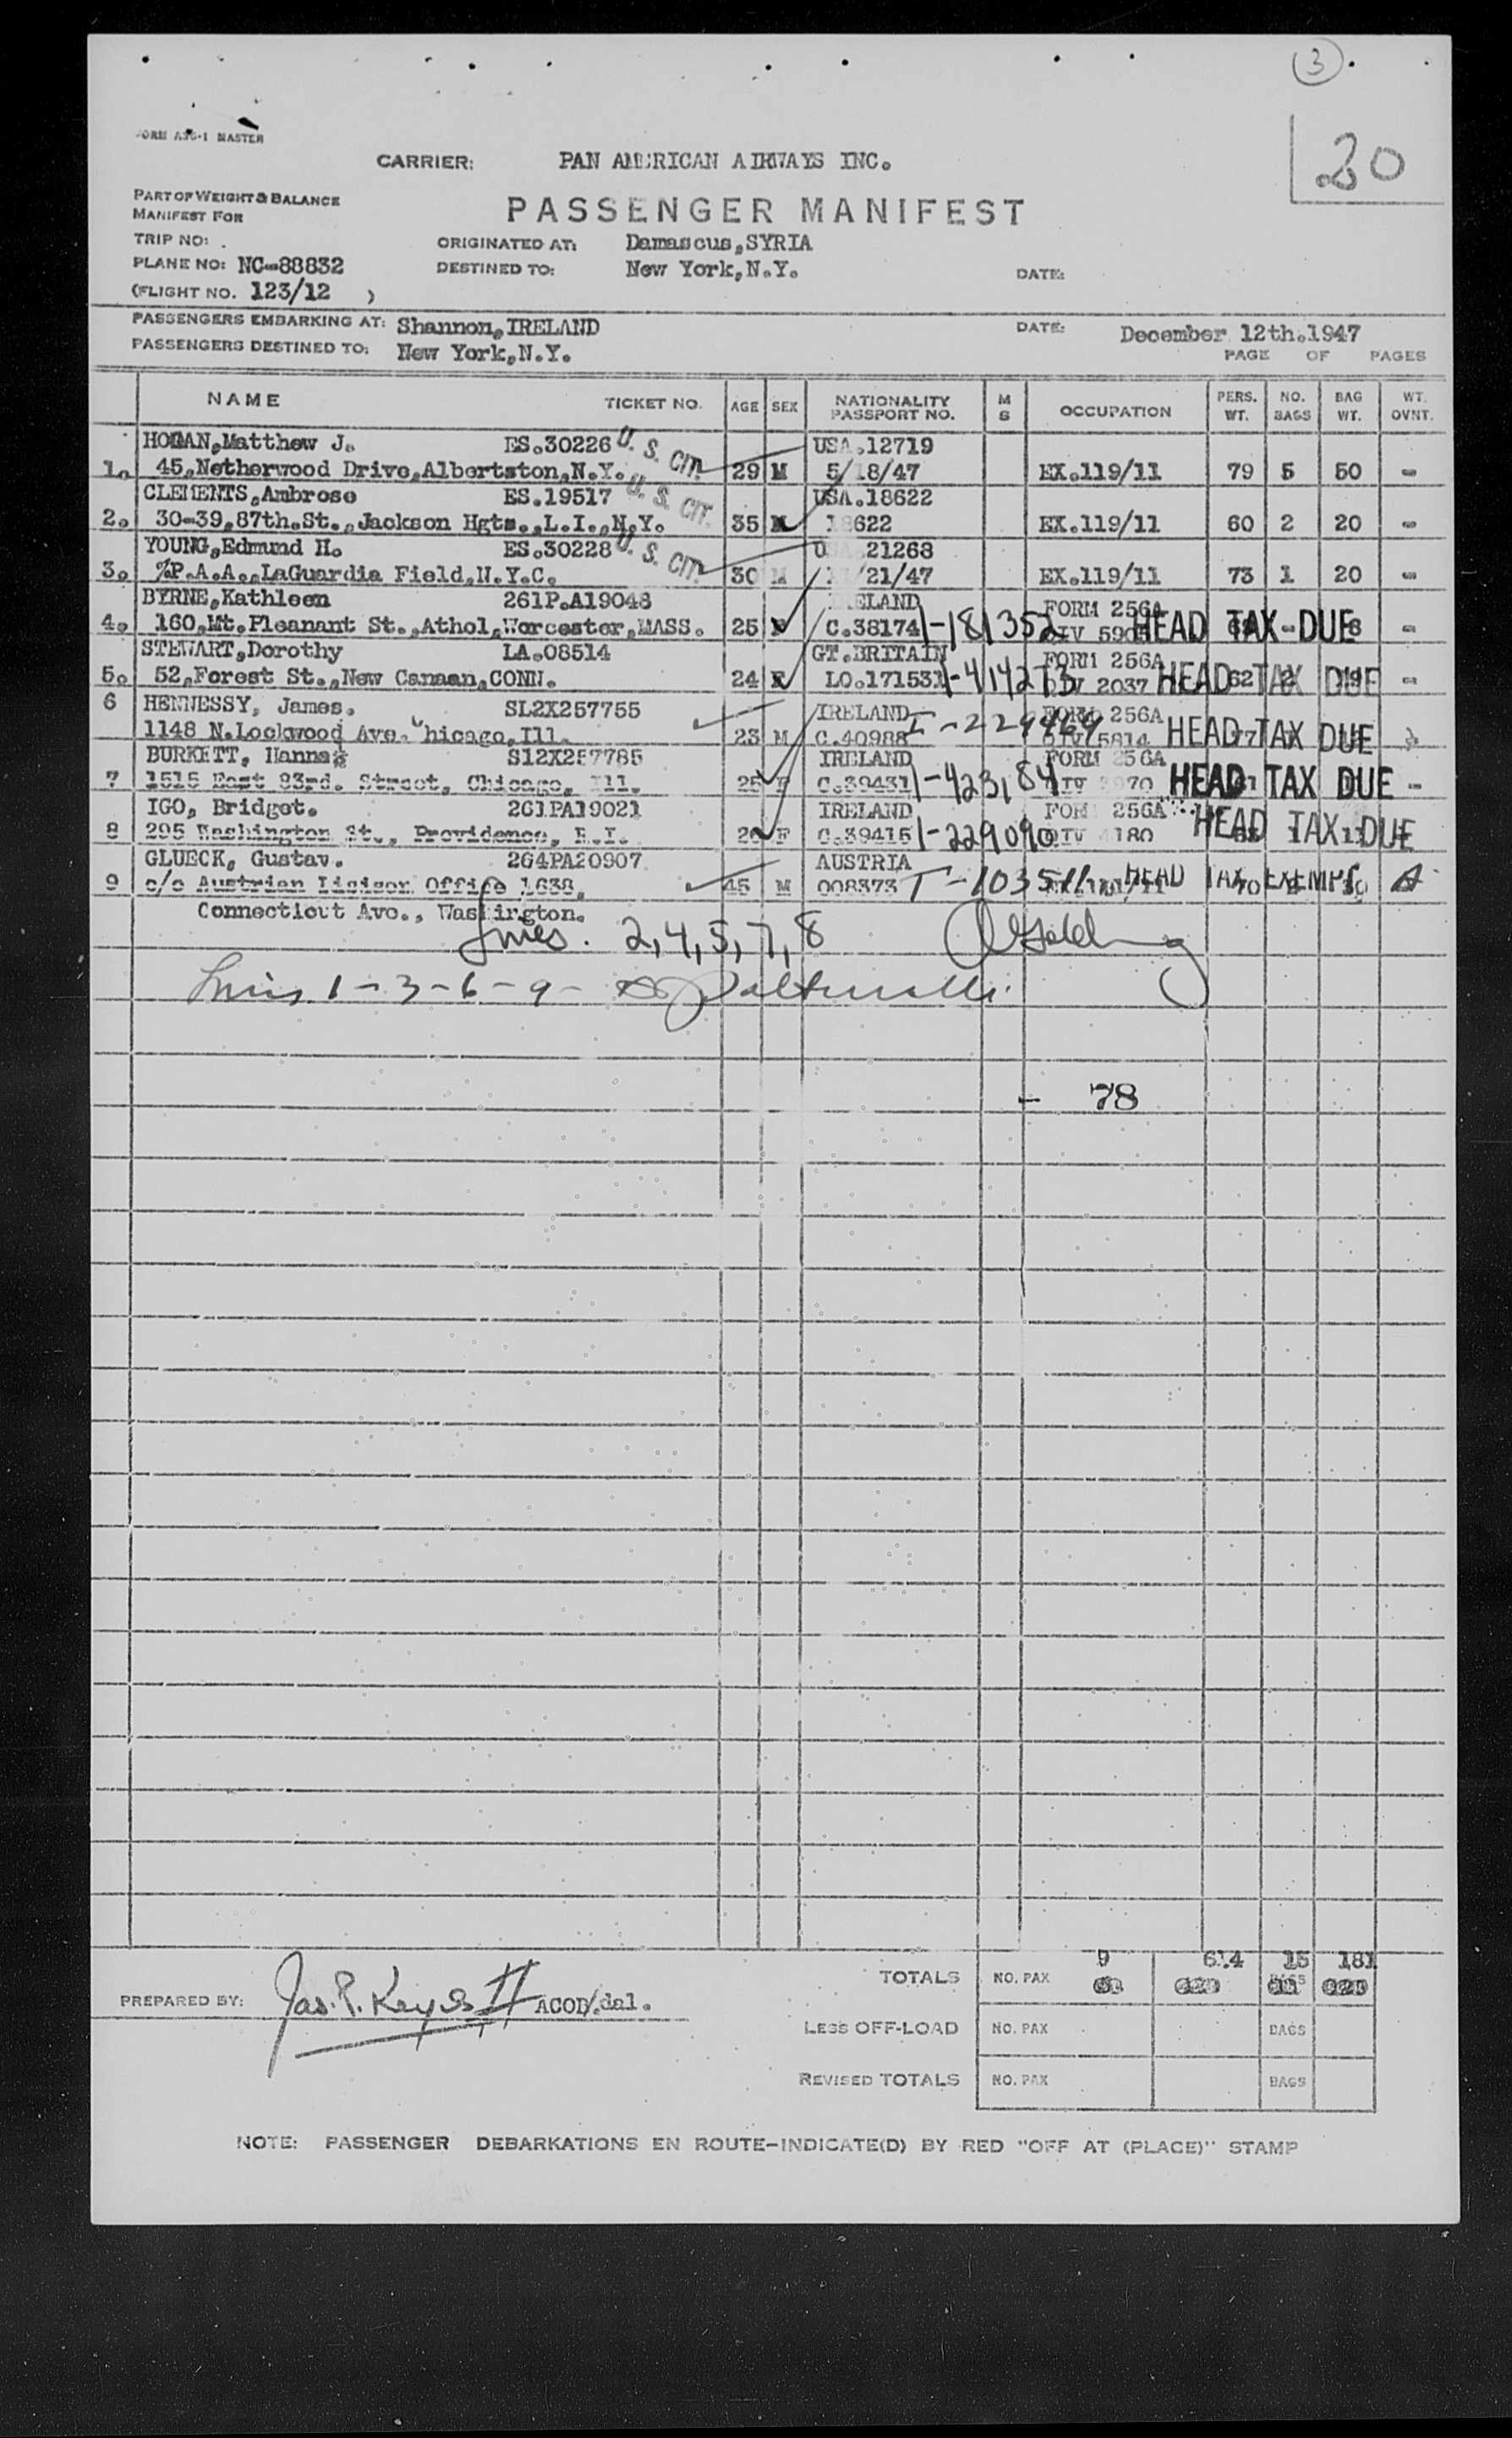 3
20
FORM A36-1 MASTER
CARRIER: PAN AMERICAN AIRWAYS INC.
PART OF WEIGHT & BALANCE
MANIFEST FOR
PASSENGER MANIFEST
TRIP NO:
ORIGINATED AT: Damascus, SYRIA
PLANE NO: NC-88832
DESTINED TO: New York, N.Y.
DATE:
(FLIGHT NO. 123/12 )
PASSENGERS EMBARKING AT: Shannon, IRELAND
DATE: December 12th.1947
PASSENGERS DESTINED TO: New York, N.Y.
PAGE OF PAGES
NAME TICKET NO. AGE SEX NATIONALITY PASSPORT NO. M S OCCUPATION PERS. WT. NO. BAGS BAG WT. WT. OVNT.
HOGAN, Matthew J. ES.30226 U. S. CIT. USA.12719
1. 45, Netherwood Drive, Albertston, N.Y. 29 M 5/18/47 EX.119/11 79 5 50 -
CLEMENTS, Ambrose ES.19517 U. S. CIT. USA.18622
2. 30-39, 87th. St., Jackson Hgts., L.I., N.Y. 35 M 18622 EX.119/11 60 2 20 -
YOUNG, Edmund H. ES.30228 U. S. CIT. 21268
3. %P.A.A., LaGuardia Field, N.Y.C. 30 M /21/47 EX.119/11 73 1 20 -
BYRNE, Kathleen 261P.A19048 IRELAND FORM 256A
4. 160, Mt. Pleanant St., Athol, Worcester, MASS. 25 F C.38174 1-181352 HEAD TAX DUE -
STEWART, Dorothy LA.08514 GT.BRITAIN FORM 256A
5. 52, Forest St., New Canaan, CONN. 24 F LO.171531 1-414273 2037 HEAD TAX DUE 62 -
6 HENNESSY, James. SL2X257755 IRELAND FORM 256A
1148 N.Lockwood Ave. Chicago, Ill. 23 M C.40988 5814 HEAD TAX DUE
BURKETT, Hannag S12X257785 IRELAND FORM 256A
7 1515 East 83rd. Street, Chicago, Ill. 25 F C.39431 HEAD TAX DUE -
IGO, Bridget. 261PA19021 IRELAND FORM 256A
8 295 Washington St., Providence, R.I. 26 F C.39415 1-229090 HEAD TAX DUE
GLUECK, Gustav. 264PA20907 AUSTRIA
9 c/o Austrian Liaison Office 1638, 45 M 008373 HEAD TAX EXEMPT
Connecticut Ave., Washington.
Lines. 2,4,5,7,8
Lines 1-3-6-9-
- 78
TOTALS NO. PAX 9 614 BAGS 15 181
PREPARED BY: Jas. P. Keyes II ACOD/dal.
LESS OFF-LOAD NO. PAX BAGS
REVISED TOTALS NO. PAX BAGS
NOTE: PASSENGER DEBARKATIONS EN ROUTE-INDICATE(D) BY RED "OFF AT (PLACE)" STAMP